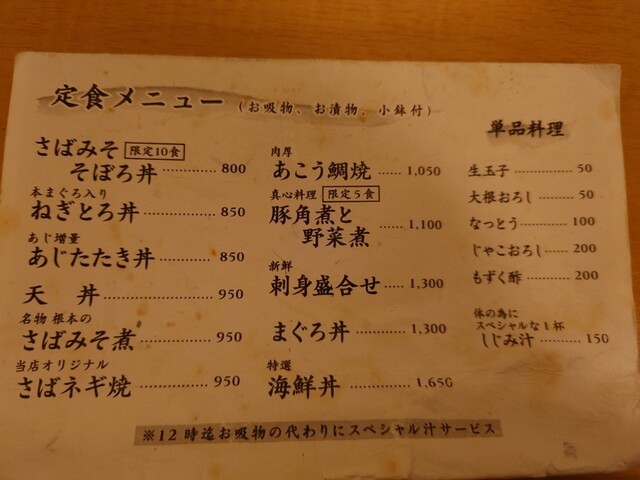 定食メニュー (お吸物、お漬物、小鉢付)
さばみそ 限定10食
そぼろ丼 ………… 800
本まぐろ入り
ねぎとろ丼 ………… 850
あじ増量
あじたたき丼 ………… 850
天 丼 ………… 950
名物 根本の
さばみそ煮 ………… 950
当店オリジナル
さばネギ焼 ………… 950
肉厚
あこう鯛焼 …… 1,050
真心料理 限定5食
豚角煮と
野菜煮 …… 1,100
新鮮
刺身盛合せ …… 1,300
まぐろ丼 …… 1,300
特選
海鮮丼 …… 1,650
単品料理
生玉子 ………… 50
大根おろし …… 50
なっとう ………… 100
じゃこおろし …… 200
もずく酢 ………… 200
体の為に
スペシャルな1杯
しじみ汁 ………… 150
※12時迄お吸物の代わりにスペシャル汁サービス